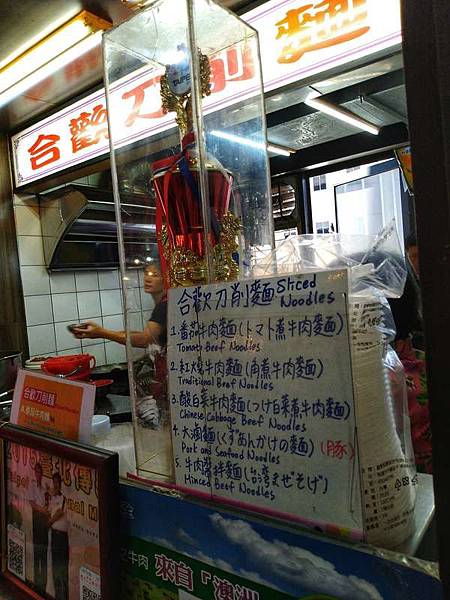 合歡刀削麵
合歡刀削麵 Sliced Noodles
1. 番茄牛肉麵(トマト煮牛肉麥面)
Tomato Beef Noodles
2. 紅燒牛肉麵(角煮牛肉麥面)
Traditional Beef Noodles
3. 酸白菜牛肉麵(つけ白菜煮牛肉麥面)
Chinese Cabbage Beef Noodles
4. 大滷麵(くずあんかけの麵) (豚)
Pork and Seafood Noodles
5. 牛肉醬拌麵(台湾まぜ"そば")
Minced Beef Noodles
合歡刀削麵
2015臺北傳
牛肉 來自「澳洲